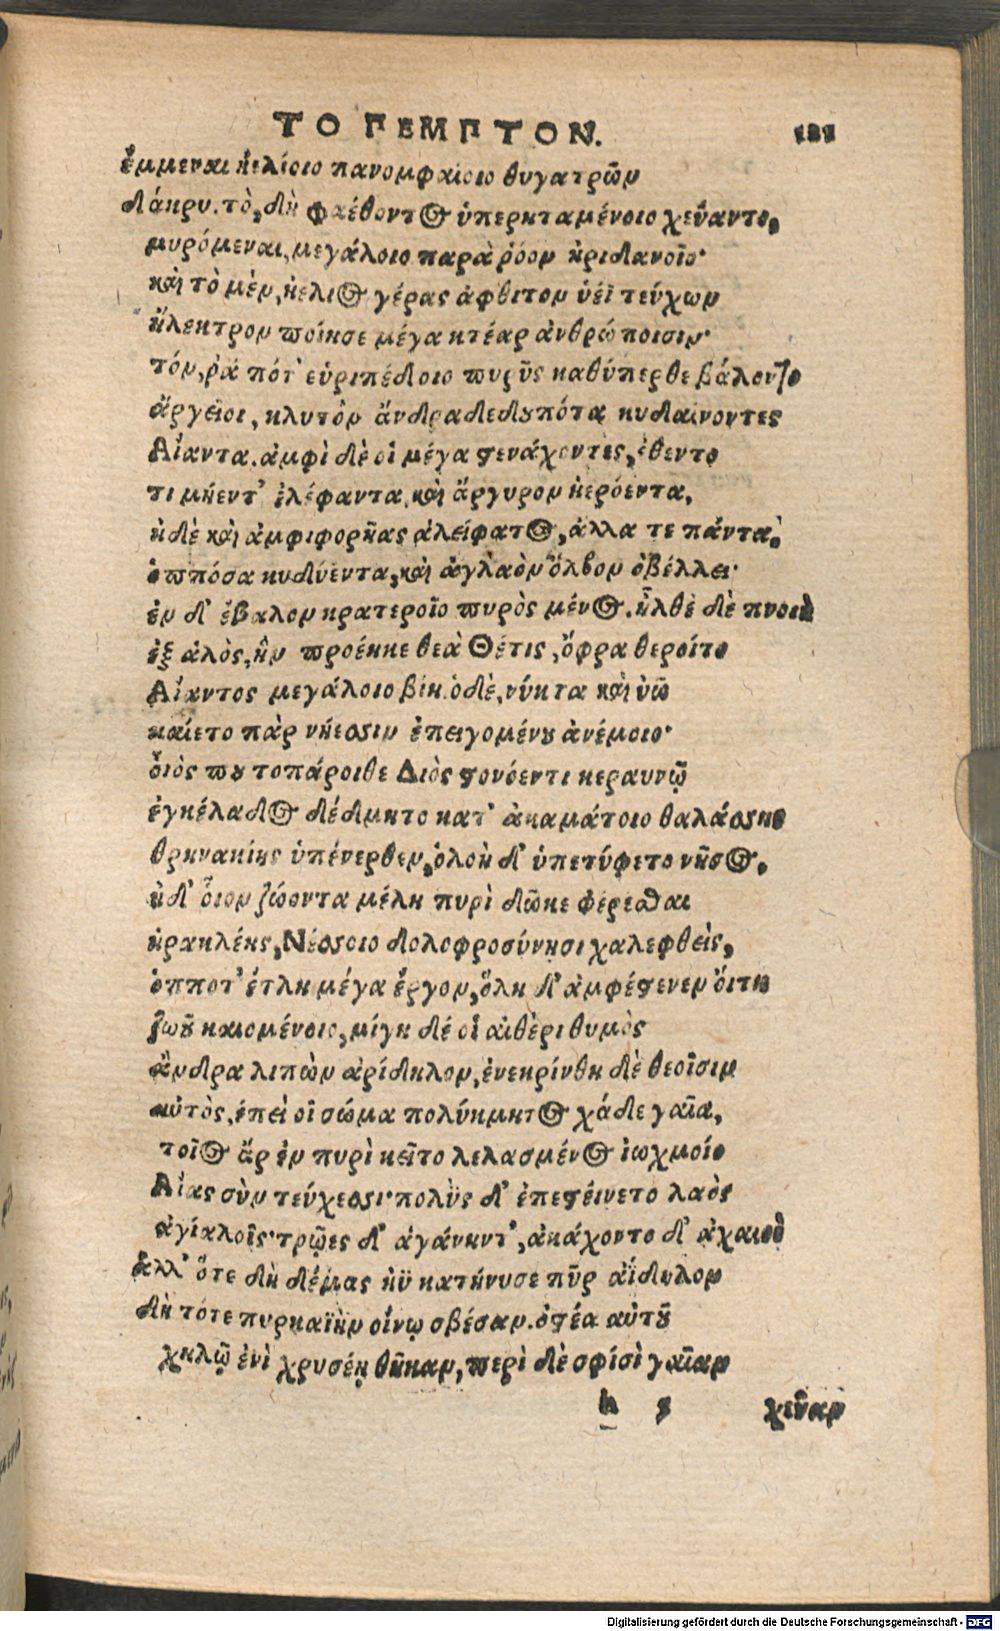 ΤΟ ΠΕΜΠΤΟΝ. 121
ἔμμεναι ἠελίοιο πανομφαίοιο θυγατρῶν
δάκρυ. τὸ, δὴ φαέθοντος ὑπερκταμένοιο χεύαντο,
μυρόμεναι, μεγάλοιο παρὰ ῥόον ἠριδανοῖο·
καὶ τὸ μὲν, ἠελιος γέρας ἀφθιτον ὑέϊ τεύχων
ἤλεκτρον ποίησε μέγα κτέαρ ἀνθρώποισιν·
τόν, ῥά πότ' εὐριπέδοιο πυρῆς καθύπερθε βάλοντο
ἄργεῖοι, κλυτὸν ἄνδρα δεδουπότα κυδαίνοντες
Αἴαντα. ἀμφὶ δὲ οἱ μέγα στενάχοντες, ἔθεντο
τι μήεντ' ἐλέφαντα, καὶ ἄργυρον ἠερόεντα,
ἠδὲ καὶ ἀμφιφορῆας ἀλείφατος, ἀλλα τε πάντα,
ὁππόσα κυδύεντα, καὶ ἀγλαὸν ὄλβον ὀβέλλει·
ἐν δ' ἔβαλον κρατεροῖο πυρὸς μένος. ἦλθε δὲ πνοιὴ
ἐξ ἁλὸς, ἣν προέηκε θεὰ Θέτις, ὄφρα θεροίτο
Αἴαντος μεγάλοιο βίη. ὁδὲ, νύκτα καὶ ὑῶ
καίετο πὰρ νήεσσιν ἐπειγομένου ἀνέμοιο·
οἷός που τοπάροιθε Διὸς στονόεντι κεραυνῷ
ἐγκέλαδος δέδμητο κατ' ἀκαμάτοιο θαλάσσης
θρηνακίης ὑπένερθεν, ὁλοὴ δ' ὑπετύφετο νῆσος.
ἠδ' οἷον ζώοντα μέλη πυρὶ δῶκε φέρεσθαι
ἡρακλέης, Νέσσοιο δολοφροσύνησι χαλεφθεὶς,
ὁπποτ' ἔτλη μέγα ἔργον, ὅλη δ' ἀμφέστενεν ὄιτη
ζωοῦ καιομένοιο, μίγη δέ οἱ αἰθέρι θυμὸς
ἄνδρα λιπὼν ἀρίδηλον, ἐνεκρίνθη δὲ θεοῖσιν
αὐτὸς, ἐπεὶ οἱ σώμα πολύκμητος χάδε γαῖα,
τοῖος ἄρ ἐν πυρὶ κεῖτο λελασμένος ἰωχμοίο
Αἴας σὺν τεύχεσσι· πολὺς δ' ἐπεστείνετο λαὸς
ἀγιαλοῖς· τρῶες δ' ἀγάνηντ', ἀκάχοντο δ' ἀχαιοὶ
ἀλλ' ὅτε δὴ δέμας ἠῢ κατήνυσε πῦρ ἀΐδηλον
δὴ τότε πυρκαϊὴν οἴνῳ σβέσαν. ὀστέα αὐτοῦ
χηλῷ ἐνὶ χρυσέῃ θῆκαν, περὶ δὲ σφίσὶ γαῖαν
h 5 χεῦαν
Digitalisierung gefördert durch die Deutsche Forschungsgemeinschaft - DFG